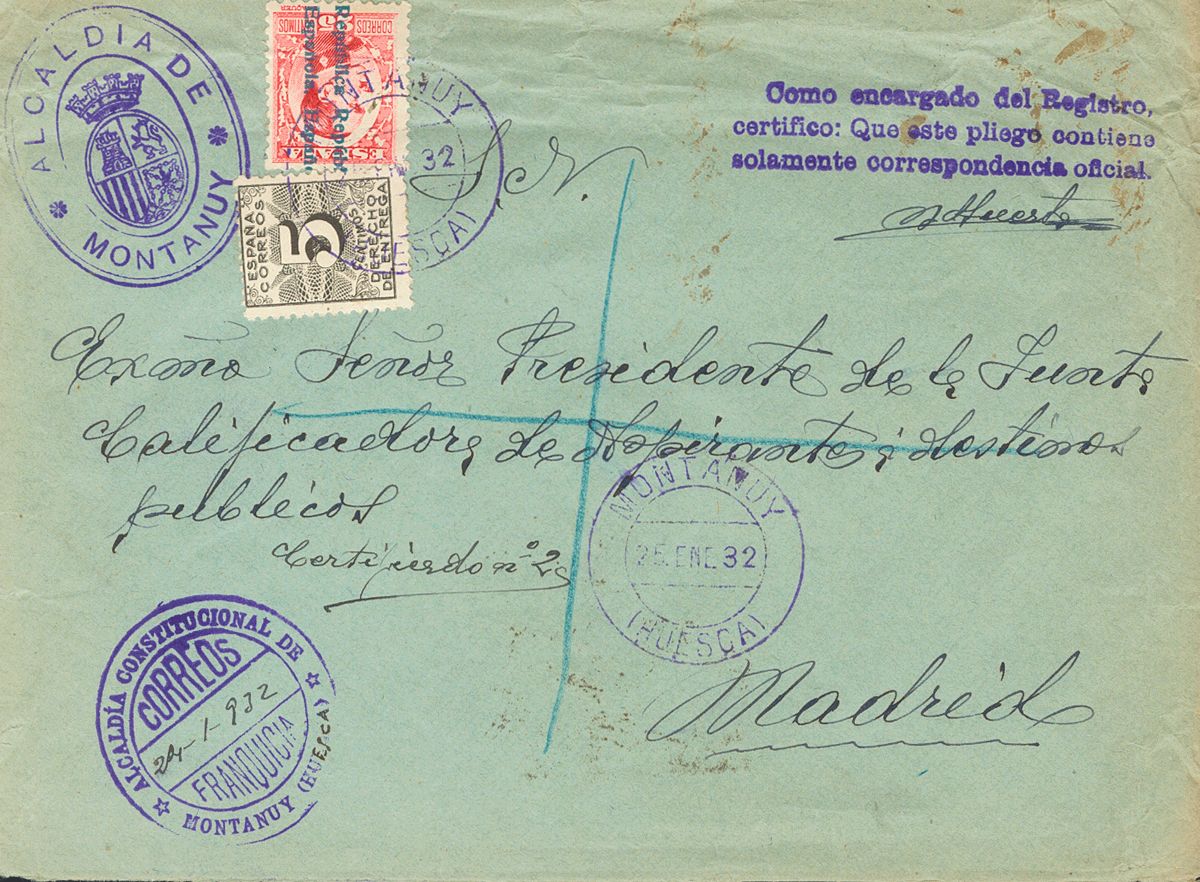 ALCALDIA DE
* MONTANUY *
CORREOS
25 CENTIMOS
ESPAÑA
República
Española
ESPAÑA
CORREOS
5
CENTIMOS
DERECHO
DE ENTREGA
MONTANUY
32
(HUESCA)
S. N.
Como encargado del Registro,
certifico: Que este pliego contiene
solamente correspondencia oficial.
Exmo Señor Presidente de la Junta
Calificadora de Aspirante a destinos
publicos
Certificado nº 2
MONTANUY
25. ENE. 32
(HUESCA)
ALCALDÍA CONSTITUCIONAL DE
CORREOS
24-1-932
FRANQUICIA
MONTANUY (HUESCA)
Madrid